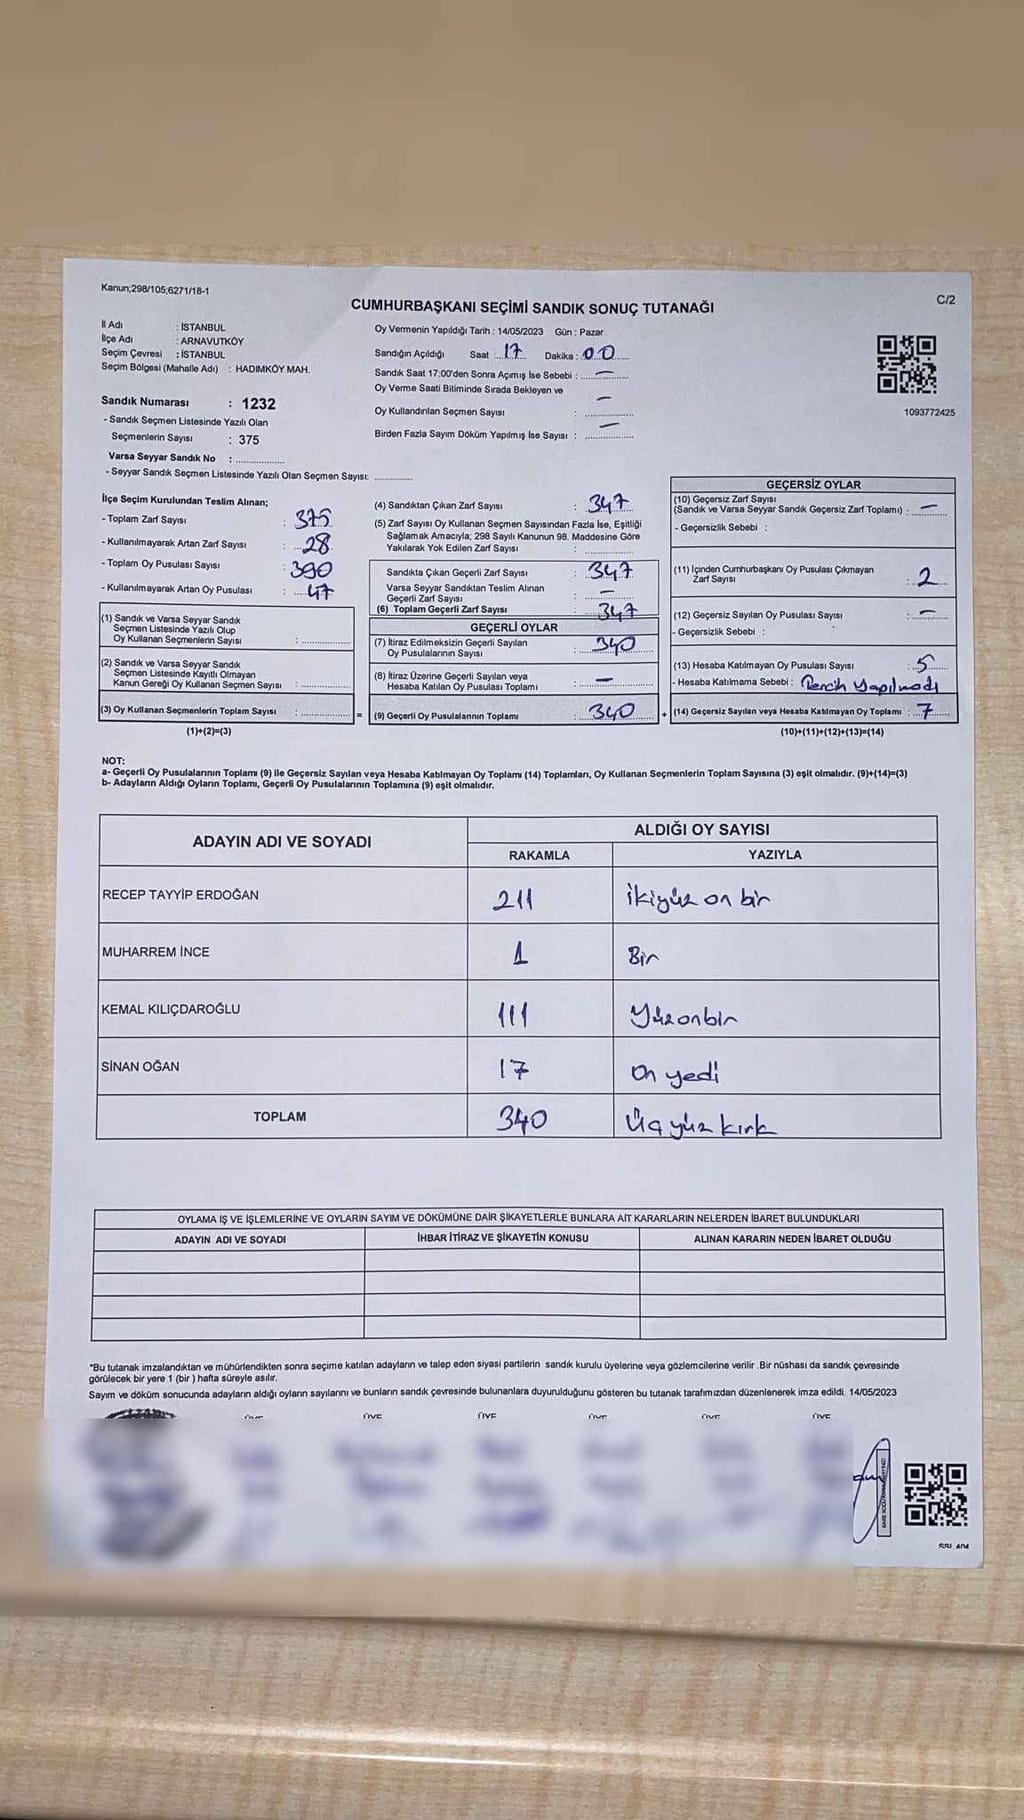 Kanun;298/105;6271/18-1
C/2
CUMHURBAŞKANI SEÇİMİ SANDIK SONUÇ TUTANAĞI
İl Adı : İSTANBUL
İlçe Adı : ARNAVUTKÖY
Seçim Çevresi : İSTANBUL
Seçim Bölgesi (Mahalle Adı) : HADIMKÖY MAH.
Sandık Numarası : 1232
- Sandık Seçmen Listesinde Yazılı Olan
Seçmenlerin Sayısı : 375
Varsa Seyyar Sandık No :
- Seyyar Sandık Seçmen Listesinde Yazılı Olan Seçmen Sayısı:
Oy Vermenin Yapıldığı Tarih : 14/05/2023 Gün : Pazar
Sandığın Açıldığı Saat : 17 Dakika : 00
Sandık Saat 17:00'den Sonra Açımış İse Sebebi : —
Oy Verme Saati Bitiminde Sırada Bekleyen ve
Oy Kullandırılan Seçmen Sayısı : —
Birden Fazla Sayım Döküm Yapılmış İse Sayısı : —
1093772425
İlçe Seçim Kurulundan Teslim Alınan;
- Toplam Zarf Sayısı : 375
- Kullanılmayarak Artan Zarf Sayısı : 28
- Toplam Oy Pusulası Sayısı : 390
- Kullanılmayarak Artan Oy Pusulası : 47
(1) Sandık ve Varsa Seyyar Sandık
Seçmen Listesinde Yazılı Olup
Oy Kullanan Seçmenlerin Sayısı :
(2) Sandık ve Varsa Seyyar Sandık
Seçmen Listesinde Kayıtlı Olmayan
Kanun Gereği Oy Kullanan Seçmen Sayısı :
(3) Oy Kullanan Seçmenlerin Toplam Sayısı : =
(1)+(2)=(3)
(4) Sandıktan Çıkan Zarf Sayısı : 347
(5) Zarf Sayısı Oy Kullanan Seçmen Sayısından Fazla İse, Eşitliği
Sağlamak Amacıyla; 298 Sayılı Kanunun 98. Maddesine Göre
Yakılarak Yok Edilen Zarf Sayısı :
Sandıkta Çıkan Geçerli Zarf Sayısı : 347
Varsa Seyyar Sandıktan Teslim Alınan
Geçerli Zarf Sayısı : —
(6) Toplam Geçerli Zarf Sayısı : 347
GEÇERLİ OYLAR
(7) İtiraz Edilmeksizin Geçerli Sayılan
Oy Pusulalarının Sayısı : 340
(8) İtiraz Üzerine Geçerli Sayılan veya
Hesaba Katılan Oy Pusulası Toplamı : —
(9) Geçerli Oy Pusulalarının Toplamı : 340 +
GEÇERSİZ OYLAR
(10) Geçersiz Zarf Sayısı
(Sandık ve Varsa Seyyar Sandık Geçersiz Zarf Toplamı) : —
- Geçersizlik Sebebi :
(11) İçinden Cumhurbaşkanı Oy Pusulası Çıkmayan
Zarf Sayısı : 2
(12) Geçersiz Sayılan Oy Pusulası Sayısı : —
- Geçersizlik Sebebi :
(13) Hesaba Katılmayan Oy Pusulası Sayısı : 5
- Hesaba Katılmama Sebebi : Tercih Yapılmadı
(14) Geçersiz Sayılan veya Hesaba Katılmayan Oy Toplamı : 7
(10)+(11)+(12)+(13)=(14)
NOT:
a- Geçerli Oy Pusulalarının Toplamı (9) ile Geçersiz Sayılan veya Hesaba Katılmayan Oy Toplamı (14) Toplamları, Oy Kullanan Seçmenlerin Toplam Sayısına (3) eşit olmalıdır. (9)+(14)=(3)
b- Adayların Aldığı Oyların Toplamı, Geçerli Oy Pusulalarının Toplamına (9) eşit olmalıdır.
ADAYIN ADI VE SOYADI ALDIĞI OY SAYISI
RAKAMLA YAZIYLA
RECEP TAYYİP ERDOĞAN 211 İkiyüz on bir
MUHARREM İNCE 1 Bir
KEMAL KILIÇDAROĞLU 111 Yüzonbir
SİNAN OĞAN 17 On yedi
TOPLAM 340 Üçyüz kırk
OYLAMA İŞ VE İŞLEMLERİNE VE OYLARIN SAYIM VE DÖKÜMÜNE DAİR ŞİKAYETLERLE BUNLARA AİT KARARLARIN NELERDEN İBARET BULUNDUKLARI
ADAYIN ADI VE SOYADI İHBAR İTİRAZ VE ŞİKAYETİN KONUSU ALINAN KARARIN NEDEN İBARET OLDUĞU
*Bu tutanak imzalandıktan ve mühürlendikten sonra seçime katılan adayların ve talep eden siyasi partilerin sandık kurulu üyelerine veya gözlemcilerine verilir .Bir nüshası da sandık çevresinde
görülecek bir yere 1 (bir ) hafta süreyle asılır.
Sayım ve döküm sonucunda adayların aldığı oyların sayılarını ve bunların sandık çevresinde bulunanlara duyurulduğunu gösteren bu tutanak tarafımızdan düzenlenerek imza edildi. 14/05/2023
ÜYE ÜYE ÜYE ÜYE ÜYE ÜYE